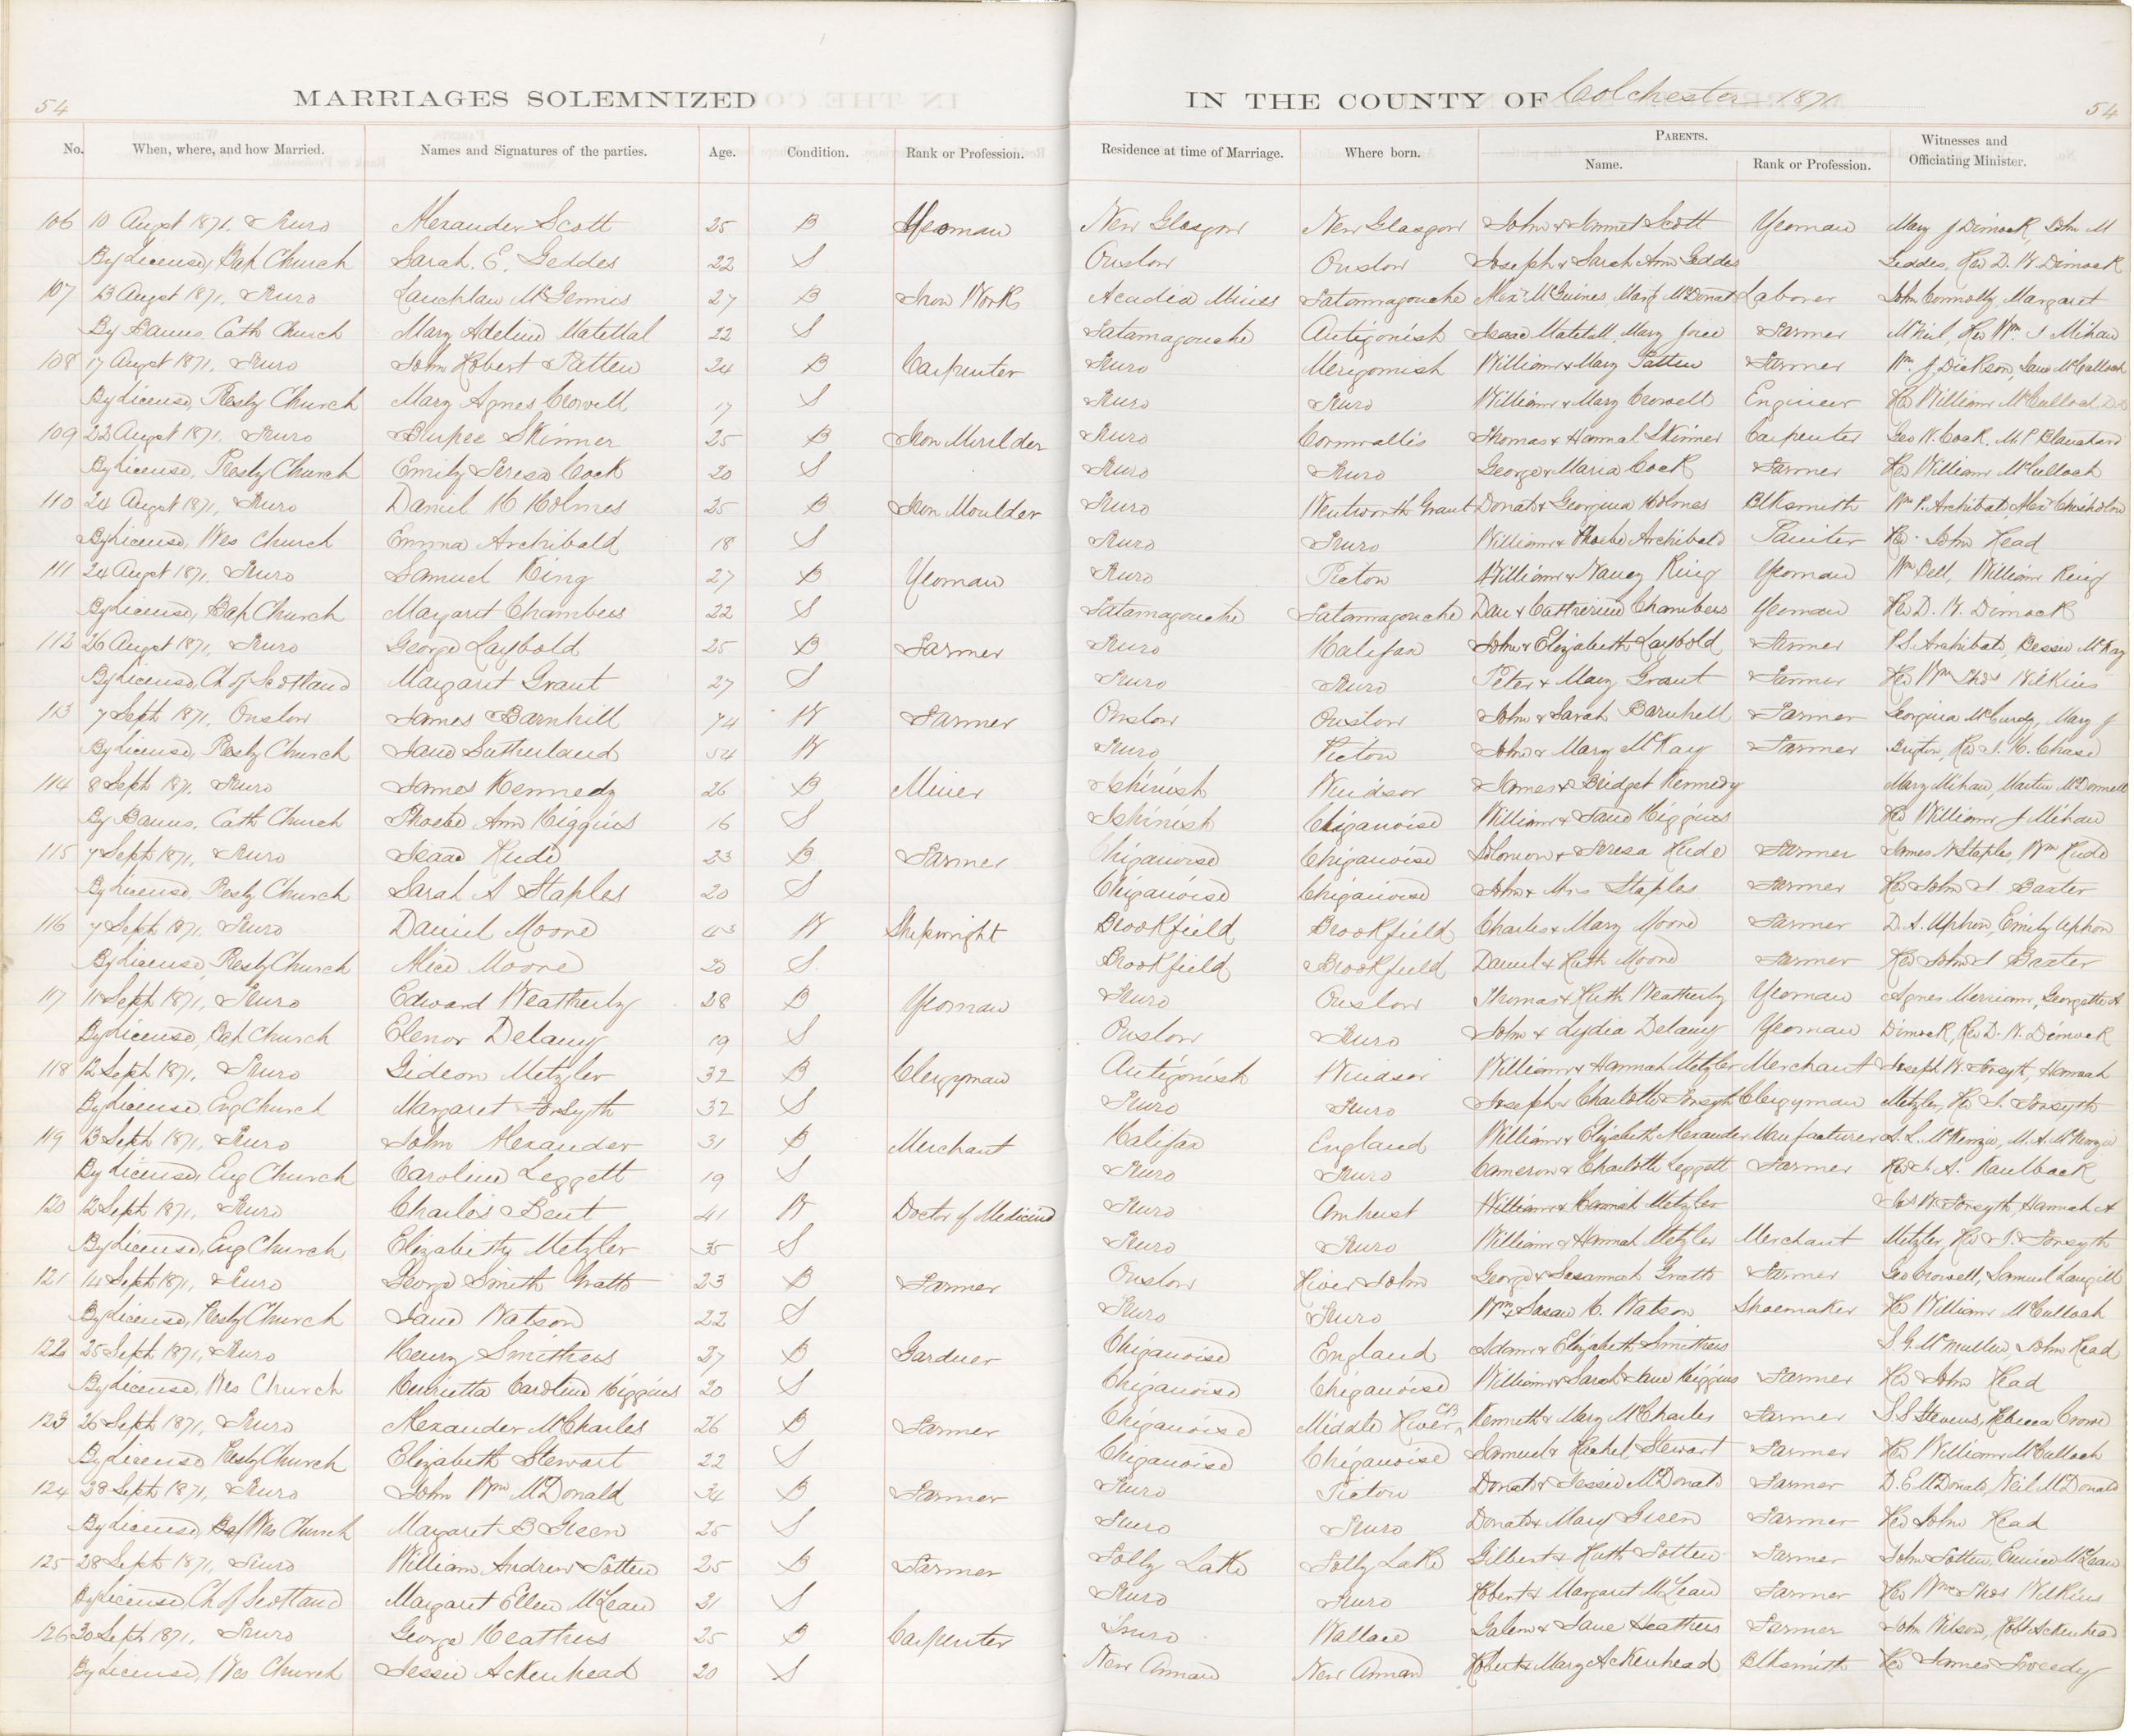 54
MARRIAGES SOLEMNIZED IN THE COUNTY OF Colchester 1871
54
No. When, where, and how Married. Names and Signatures of the parties. Age. Condition. Rank or Profession. Residence at time of Marriage. Where born. PARENTS. Name. Rank or Profession. Witnesses and Officiating Minister.
106 10 Augst 1871. Truro Alexander Scott 25 B Yeoman New Glasgow New Glasgow John & Scott Yeoman Mary J Dimock, John M
By License, Bap Church Sarah. E. Geddes 22 S Onslow Onslow Joseph & Sarah Ann Geddes Geddes, Rev D. W. Dimock
107 13 Augst 1871. Truro Lauchlan McGennis 27 B Iron Work Acadia Mines Tatamagouche Alexr McGuines, Margt McDonat Laborer John Connolly, Margaret
By Banns, Cath Church Mary Adeline Matettal 22 S Tatamagouche Antigonish Isaac Matettall, Mary Joice Farmer McNeil, Rev Wm. J Mihan
108 17 Augst 1871, Truro John Robert Patten 24 B Carpenter Truro Merigomish William & Mary Patten Farmer Wm. J. Dickson, Jane McCulloch
By License, Presby Church Mary Agnes Crowell 17 S Truro Truro William & Mary Crowell Engineer Rev William McCulloch DD
109 22 Augst 1871, Truro Burpee Skinner 25 B Iron Moulder Truro Cornwallis Thomas & Hannah Skinner Carpenter Geo W. Cock, M. P Blanchard
By License, Presby Church Emily Teresa Cock 20 S Truro Truro George & Maria Cock Farmer Rev William McCulloch
110 24 Augst 1871, Truro Daniel H Holmes 25 B Iron Moulder Truro Wentworth Grant Donald & Georgina Holmes Blksmith Wm P. Archibald, Alexr Chisholm
By License, Wes Church Emma Archibald 18 S Truro Truro William & Phoebe Archibald Painter Rev. John Read
111 24 Augst 1871. Truro Samuel King 27 B Yeoman Truro Pictou William & Nancy King Yeoman Wm Bell, William King
By License, Bap Church Margaret Chambers 22 S Tatamagouche Tatamagouche Dan & Catherine Chambers Yeoman Rev D. W. Dimock
112 26 Augst 1871, Truro George Laybold 25 B Farmer Truro Halifax John & Elizabeth Laybold Farmer P S Archibald, Bessie McKay
By License, Ch of Scotland Margaret Grant 27 S Truro Truro Peter & Mary Grant Farmer Rev Wm Thos Wilkins
113 7 Sept 1871, Onslow James Barnhill 74 W Farmer Onslow Onslow John & Sarah Barnhill Farmer Georgina McCurdy, Mary J
By License, Presby Church Jane Sutherland 54 W Truro Pictou John & Mary McKay Farmer Rev J. H. Chase
114 8 Sept 1871. Truro James Kennedy 26 B Miner Ishinish Windsor James & Bridget Kennedy Mary Mihan, Martin McDonnell
By Banns, Cath Church Phoebe Ann Higgins 16 S Ishinish Chiganoise William & Jane Higgins Rev William J Mihan
115 7 Sept 1871, Truro Isaac Rude 23 B Farmer Chiganoise Chiganoise Solomon & Teresa Rude Farmer James N Staples, Wm Rude
By License, Presby Church Sarah A Staples 20 S Chiganoise Chiganoise John & Mrs Staples Farmer Rev John I Baxter
116 7 Sept 1871, Truro Daniel Moore 43 W Shipwright Brookfield Brookfield Charles & Mary Moore Farmer D. A. Uphon, Emily Uphon
By License, Presby Church Alice Moore 20 S Brookfield Brookfield Daniel & Ruth Moore Farmer Rev John I Baxter
117 11 Sept 1871, Truro Edward Weatherby 28 B Yeoman Truro Onslow Thomas & Ruth Weatherby Yeoman Agnes Merriam, Georgette A
By License, Bap Church Elenor Delany 19 S Onslow Truro John & Lydia Delany Yeoman Dimock, Rev D. W. Dimock
118 12 Sept 1871. Truro Gideon Metzler 32 B Clergyman Antigonish Windsor William & Hannah Metzler Merchant Joseph W. Forsyth, Hannah
By License, Eng Church Margaret Forsyth 32 S Truro Truro Joseph & Charlotte Forsyth Clergyman Metzler, Rev J. Forsyth
119 13 Sept 1871, Truro John Alexander 31 B Merchant Halifax England William & Elizabeth Alexander Manufacturer A. L. McKenzie, M. A. McKenzie
By License, Eng Church Caroline Leggett 19 S Truro Truro Cameron & Charlotte Leggett Farmer Rev J. A. Kaulback
120 12 Sept 1871, Truro Charles Bent 41 W Doctor of Medicine Truro Amherst William & Hannah Metzler Jos W. Forsyth, Hannah A
By License, Eng Church Elizabeth Metzler 35 S Truro Truro William & Hannah Metzler Merchant Metzler, Rev J. Forsyth
121 14 Sept 1871, Truro George Smith Gratto 23 B Farmer Onslow River John George & Susannah Gratto Farmer Geo Crowell, Samuel Langill
By License, Presby Church Jane Watson 22 S Truro Truro Wm & Susan C. Watson Shoemaker Rev William McCulloch
122 25 Sept 1871, Truro Henry Smithers 27 B Gardner Chiganoise England Adam & Elizabeth Smithers S. G. McMullen John Read
By License, Wes Church Henrietta Caroline Higgins 20 S Chiganoise Chiganoise William & Sarah Jane Higgins Farmer Rev John Read
123 26 Sept 1871, Truro Alexander McCharles 26 B Farmer Chiganoise Middle River CB Kenneth & Mary McCharles Farmer S. S Stevens, Rebecca Crowe
By License Presby Church Elizabeth Stewart 22 S Chiganoise Chiganoise Samuel & Rachel Stewart Farmer Rev William McCulloch
124 28 Sept 1871, Truro John Wm McDonald 34 B Farmer Truro Pictou Donald & Jessie McDonald Farmer D. E McDonald, Neil McDonald
By License, Wes Church Margaret B Green 25 S Truro Truro Donald & Mary Green Farmer Rev John Read
125 28 Sept 1871, Truro William Andrew Totten 25 B Farmer Folly Lake Folly Lake Gilbert & Ruth Totten Farmer John Totten, Eunice McLean
By License, Ch of Scotland Margaret Ellen McLean 21 S Truro Truro Robert & Margaret McLean Farmer Rev Wm Thos Wilkins
126 30 Sept 1871, Truro George Heathers 25 B Carpenter Truro Wallace Galem & Jane Heathers Farmer John Wilson, Robt Ackenhead
By License, Wes Church Jessie Ackenhead 20 S New Annan New Annan Robert & Mary Ackenhead Blksmith Rev James Tweedy